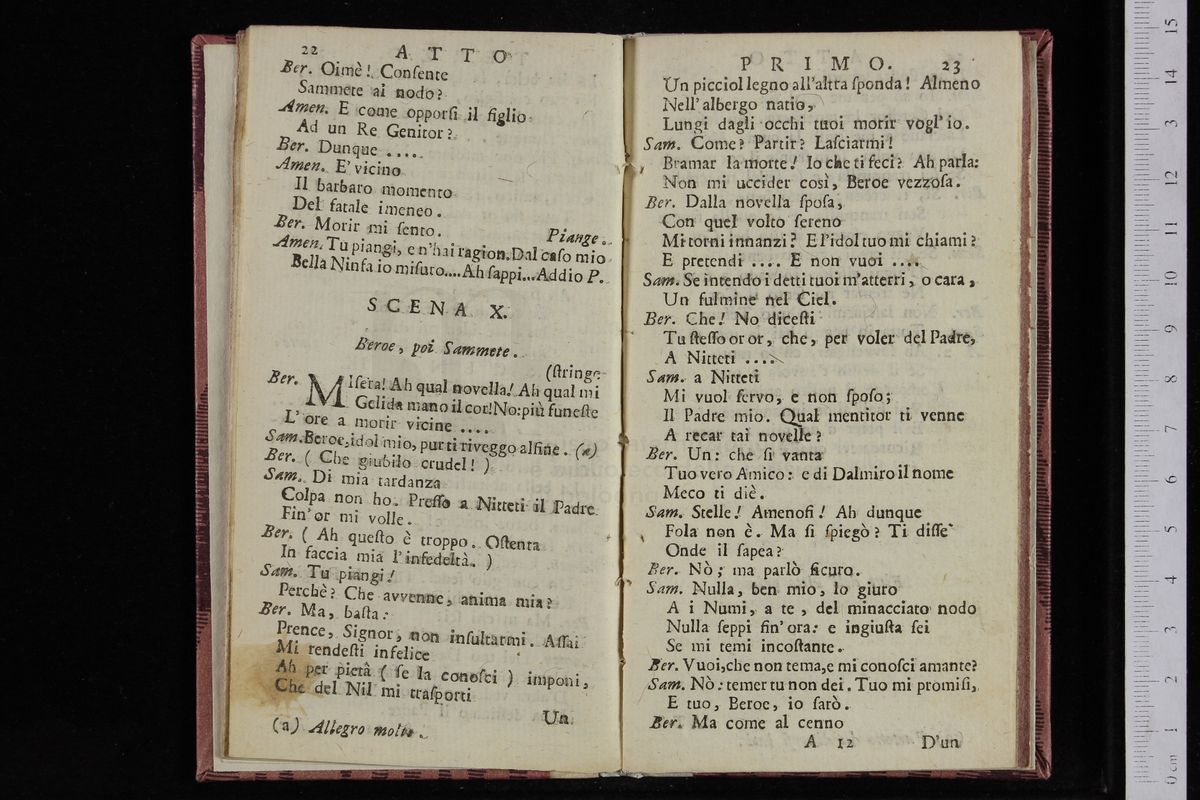 22 ATTO
Ber. Oimè! Conſente
Sammete al nodo?
Amen. E come opporſi il figlio
Ad un Re Genitor?
Ber. Dunque .....
Amen. E' vicino
Il barbaro momento
Del fatale imeneo.
Ber. Morir mi ſento. Piange.
Amen. Tu piangi, e n'hai ragion. Dal caſo mio
Bella Ninfa io miſuro....Ah ſappi...Addio P.
SCENA X.
Beroe, poi Sammete.
(ſtringe
Ber. MIſera! Ah qual novella! Ah qual mi
Gelida mano il cor! No: più funeſte
L'ore a morir vicine ....
Sam. Beroe, idol mio, pur ti riveggo alfine. (a)
Ber. ( Che giubilo crudel! )
Sam. Di mia tardanza
Colpa non ho. Preſſo a Nitteti il Padre
Fin'or mi volle.
Ber. ( Ah queſto è troppo. Oſtenta
In faccia mia l'infedeltà. )
Sam. Tu piangi!
Perchè? Che avvenne, anima mia?
Ber. Ma, baſta:
Prence, Signor, non inſultarmi. Aſſai
Mi rendeſti infelice
Ah per pietà ( ſe la conoſci ) imponi,
Che del Nil mi traſporti
Un
(a) Allegro molto.
PRIMO. 23
Un picciol legno all'altra ſponda! Almeno
Nell'albergo natio,
Lungi dagli occhi tuoi morir vogl'io.
Sam. Come? Partir? Laſciarmi!
Bramar la morte! Io che ti feci? Ah parla:
Non mi uccider così, Beroe vezzoſa.
Ber. Dalla novella ſpoſa,
Con quel volto ſereno
Mi torni innanzi? E l'idol tuo mi chiami?
E pretendi .... E non vuoi ....
Sam. Se intendo i detti tuoi m'atterri, o cara,
Un fulmine nel Ciel.
Ber. Che! No diceſti
Tu ſteſſo or or, che, per voler del Padre,
A Nitteti ....
Sam. a Nitteti
Mi vuol ſervo, e non ſpoſo;
Il Padre mio. Qual mentitor ti venne
A recar tai novelle?
Ber. Un: che ſi vanta
Tuo vero Amico: e di Dalmiro il nome
Meco ti diè.
Sam. Stelle! Amenofi! Ah dunque
Fola non è. Ma ſi ſpiegò? Ti diſſe
Onde il ſapea?
Ber. Nò; ma parlò ſicuro.
Sam. Nulla, ben mio, lo giuro
A i Numi, a te, del minacciato nodo
Nulla ſeppi fin'ora: e ingiuſta ſei
Se mi temi incoſtante.
Ber. Vuoi, che non tema, e mi conoſci amante?
Sam. Nò: temer tu non dei. Tuo mi promiſi,
E tuo, Beroe, io ſarò.
Ber. Ma come al cenno
A 12 D'un